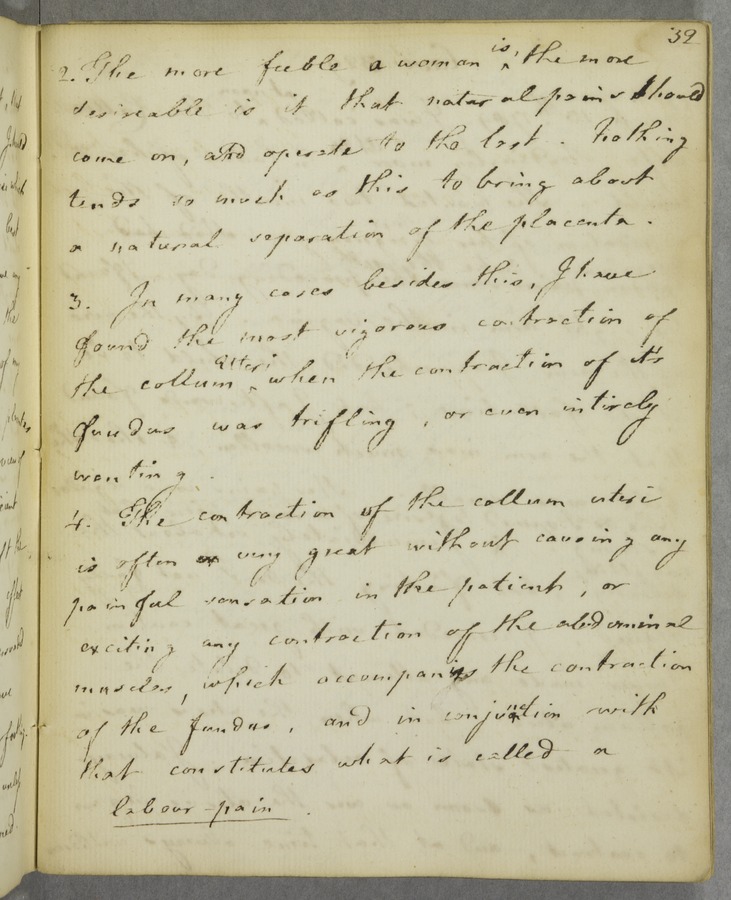 39
2. The more feeble a woman is, the more
desireable is it that natural pains should
come on, and operate to the last. Nothing
tends so much as this to bring about
a natural separation of the placenta.
3. In many cases besides this, I have
found the most vigorous contraction of
the collum uteri when the contraction of its
fundus was trifling, or even intirely
wanting.
4. The contraction of the collum uteri
is often very great without causing any
painful sensation in the patient, or
exciting any contraction of the abdominal
muscles, which accompanys the contraction
of the fundus, and in conjunction with
that constitutes what is called a
labour-pain.